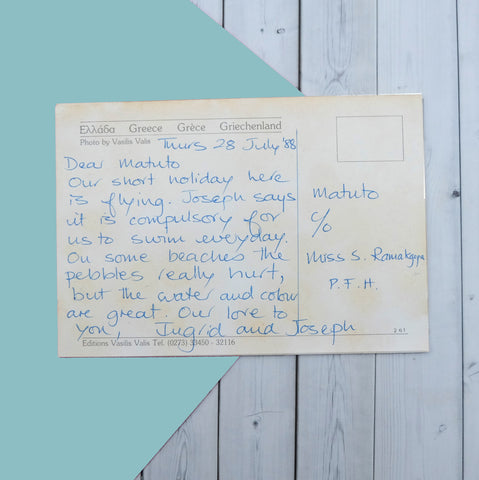 Ελλάδα Greece Grèce Griechenland
Photo by Vasilis Valis
Thurs 28 July '88
Dear Matuto
Our short holiday here
is flying. Joseph says
it is compulsory for
us to swim everyday.
On some beaches the
pebbles really hurt,
but the water and colour
are great. Our love to
you, Ingrid and Joseph
Editions Vasilis Valis Tel. (0273) 33450 - 32116
261
Matuto
c/o
Miss S.
P.F.H.